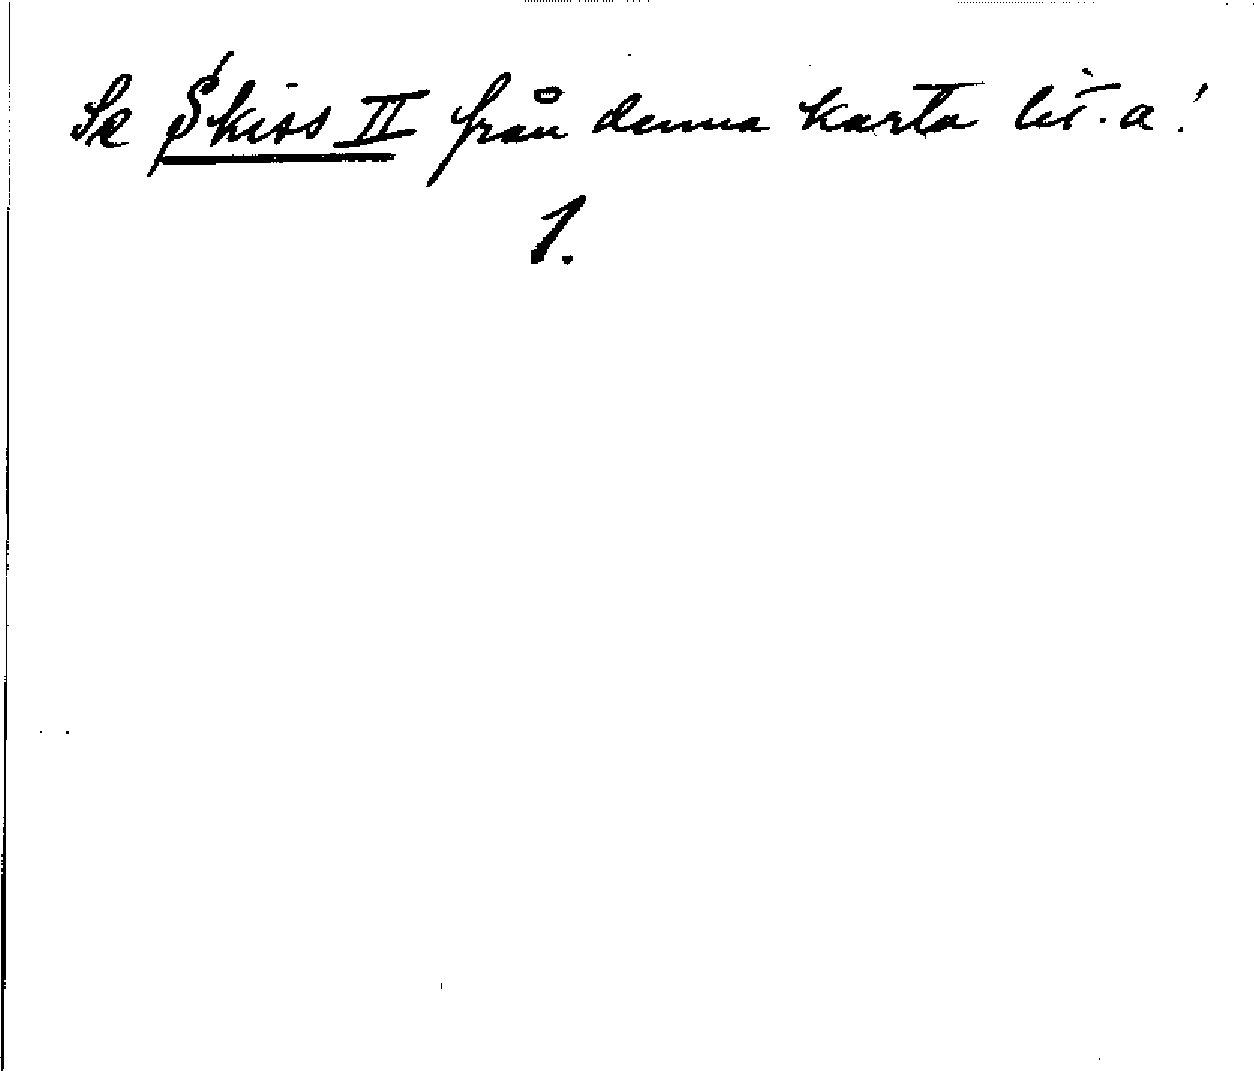 Se Skiss II från denna karta lit. a!
1.